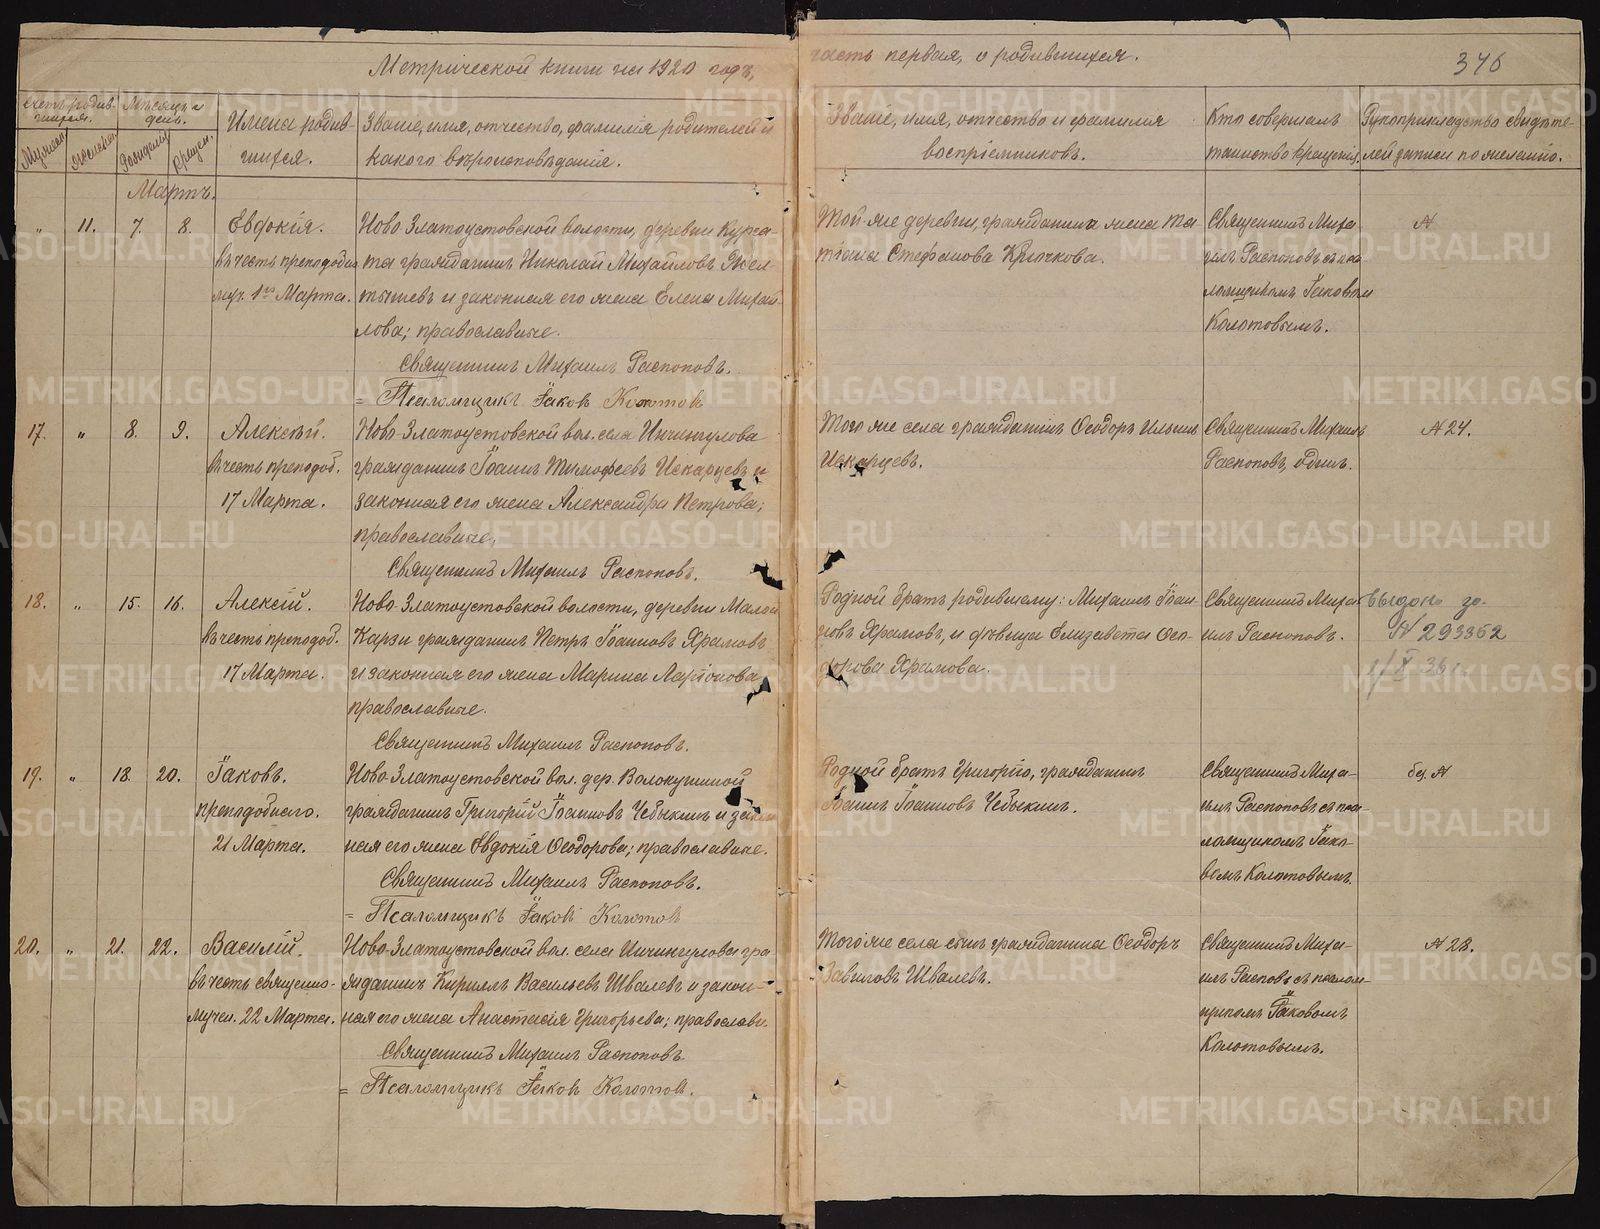 Метрической книги на 1920 годъ,
часть первая, о родившихся.
346
Счетъ родив-
шихся.
Мѣсяцъ и
день.
Мужеск.
Женска.
Рожденія
Крещен.
Имена родив-
шихся.
Званіе, имя, отчество, фамилія родителей и
какого вѣроисповѣданія.
Званіе, имя, отчество и фамилія
воспріемниковъ.
Кто совершалъ
таинство крещенія
Рукоприкладство свидѣте-
лей записи по желанію.
Мартъ.
" 11. 7. 8.
Евдокія.
въ честь преподобн
муч. 1го Марта.
Ново Златоустовской волости, деревни Курга-
та гражданинъ Николай Михайловъ
тышевъ и законная его жена Елена Михай-
лова; православные.
Священникъ Михаилъ Распоповъ.
= Псаломщикъ Іаковъ Колотов
Той-же деревни, гражданина жена Та
тіана Стефанова Крючкова.
Священникъ Миха
илъ Распоповъ съ пса
ломщикомъ Іаковом
Колотовымъ.
№
17. " 8. 9.
Алексѣй.
въ честь преподоб.
17 Марта.
Ново Златоустовской вол. села Ичингулова
гражданинъ Іоаннъ Тимофеевъ Искарцевъ и
законная его жена Александра Петрова;
православные,
Священникъ Михаилъ Распоповъ.
Того же села гражданинъ Ѳеодоръ Ильинъ
Искарцевъ.
Священникъ Михаилъ
Распоповъ, одинъ.
№ 24.
18. " 15. 16.
Алексій.
въ честь преподоб.
17 Марта.
Ново Златоустовской волости, деревни Малой
Карзи гражданинъ Петръ Іоанновъ Храмовъ
и законная его жена Марина Ларіонова
православные.
Священникъ Михаилъ Распоповъ.
Родной братъ родившему: Михаилъ Іоан
новъ Храмовъ, и дѣвица Елизавета Ѳео-
дорова Храмова.
Священникъ Миха
илъ Распоповъ.
выдано
№ 293352
1/X 36 г.
19. " 18. 20.
Іаковъ.
преподобнаго.
21 Марта.
Ново Златоустовской вол. дер. Волокушиной
гражданинъ Григорій Іоанновъ Чебыкинъ и закон
ная его жена Евдокія Ѳеодорова; православные.
Священникъ Михаилъ Распоповъ.
= Псаломщикъ Іаковъ Колотов
Родной братъ Григорію, гражданинъ
Іоаннъ Іоанновъ Чебыкинъ.
Священникъ Миха-
илъ Распоповъ съ пса-
ломщикомъ Іако-
вомъ Колотовымъ.
без №
20. " 21. 22.
Василій.
въ честь священно-
мучен. 22 Марта.
Ново Златоустовской вол. села Ичингулова гра-
жданинъ Кириллъ Васильевъ Швалевъ и закон-
ная его жена Анастасія Григорьева; православн.
Священникъ Михаилъ Распоповъ
= Псаломщикъ Іаковъ Колотов.
Того же села сынъ гражданина Ѳеодоръ
Завиловъ Швалевъ.
Священникъ Миха-
илъ Распоповъ съ псалом-
щикомъ Іаковомъ
Колотовымъ.
№ 28.
METRIKI.GASO-URAL.RU